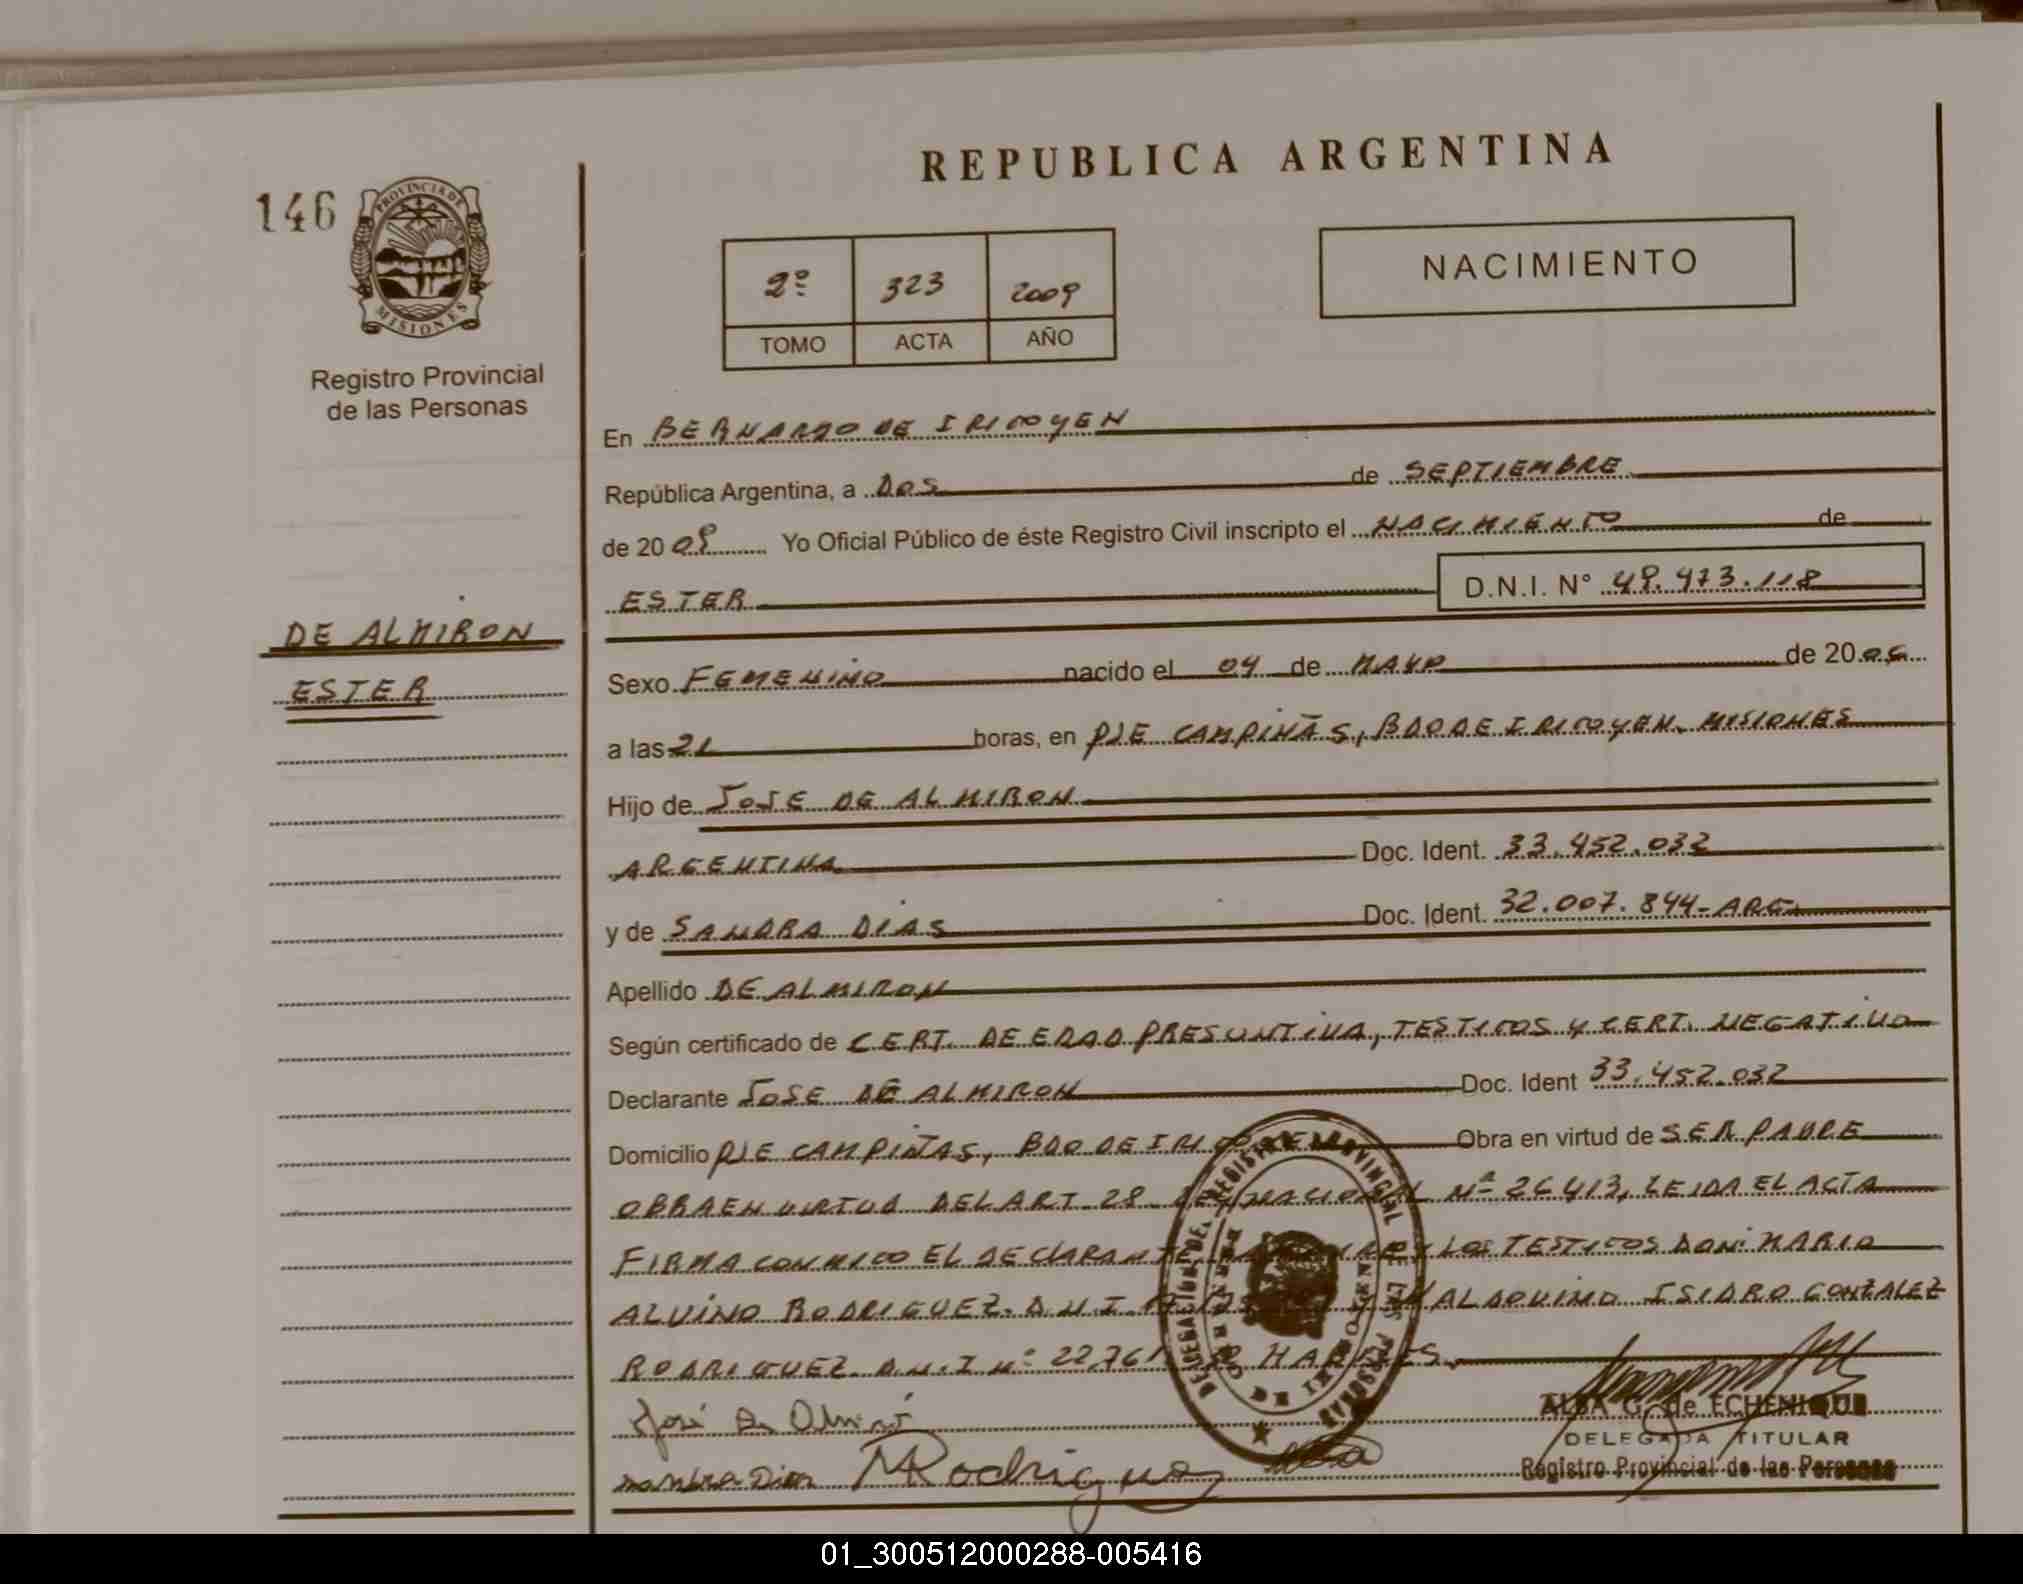 REPUBLICA ARGENTINA
146
PROVINCIA DE
MISIONES
Registro Provincial
de las Personas
2º 323 2009
TOMO ACTA AÑO
NACIMIENTO
En BERNARDO DE IRIGOYEN
República Argentina, a DOS de SEPTIEMBRE
de 2009 Yo Oficial Público de éste Registro Civil inscripto el NACIMIENTO de
ESTER D.N.I. Nº 49.473.118
DE ALMIRON
ESTER
Sexo FEMENINO nacido el 04 de MAYO de 2006
a las 21 horas, en PJE CAMPIÑAS, BDO DE IRIGOYEN. MISIONES
Hijo de JOSE DE ALMIRON
ARGENTINA Doc. Ident. 33.452.032
y de SANDRA DIAS Doc. Ident. 32.007.844-ARG.
Apellido DE ALMIRON
Según certificado de CERT. DE EDAD PRESUNTIVA, TESTIGOS Y CERT. NEGATIVO
Declarante JOSE DE ALMIRON Doc. Ident 33.452.032
Domicilio PJE CAMPIÑAS, BDO DE Obra en virtud de SER PADRE
OBRA EN VIRTUD DEL ART. 28 Nº 26413, LEIDA EL ACTA
FIRMA CONMIGO EL DECLARANTE LOS TESTIGOS DON: MARIO
ALVINO RODRIGUEZ. D.N.I. ISIDRO GONZALEZ
RODRIGUEZ D.N.I Nº 22.761
José De
DELEGACION DEL REGISTRO PROVINCIAL DE LAS PERSONAS
Sandra Dias MRodriguez
ALBA G. de ECHENIQUE
DELEGADA TITULAR
Registro Provincial de las Personas
01_300512000288-005416